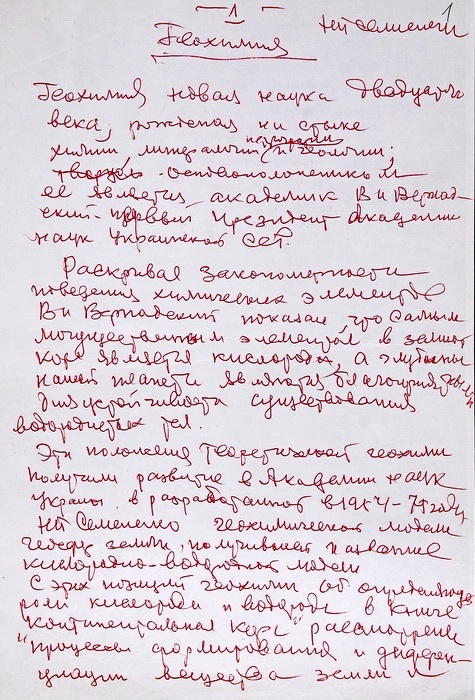 — 1 —
1
НП Семененко
Геохимия
Геохимия новая наука двадцатого
века, рожденая на стыке
химии, минералогии, петрографии и геологии;
творцом основоположником
ее является академик В И Вернад-
ский первый президент Академии
наук Украинской ССР.
Раскривая закономерности
поведения химических элементов
В И Вернадский показал, что самым
могущественным элементом в земной
коре является кислород, а глубины
нашей планеты являются благоприятными
для устойчивости существования
водородистых тел.
Эти положения теоретической геохимии
получили развитие в Академии наук
Украины в разработанной в 1954-75 годы
НП Семененко геохимической модели
земли, получившей название
кислородно-водородной модели
С этих позиций геохимии об определяющей
роли кислорода и водорода в книге
"Континентальная кора" рассмотрены
"процессы формирования и диферен-
циации вещества земли и